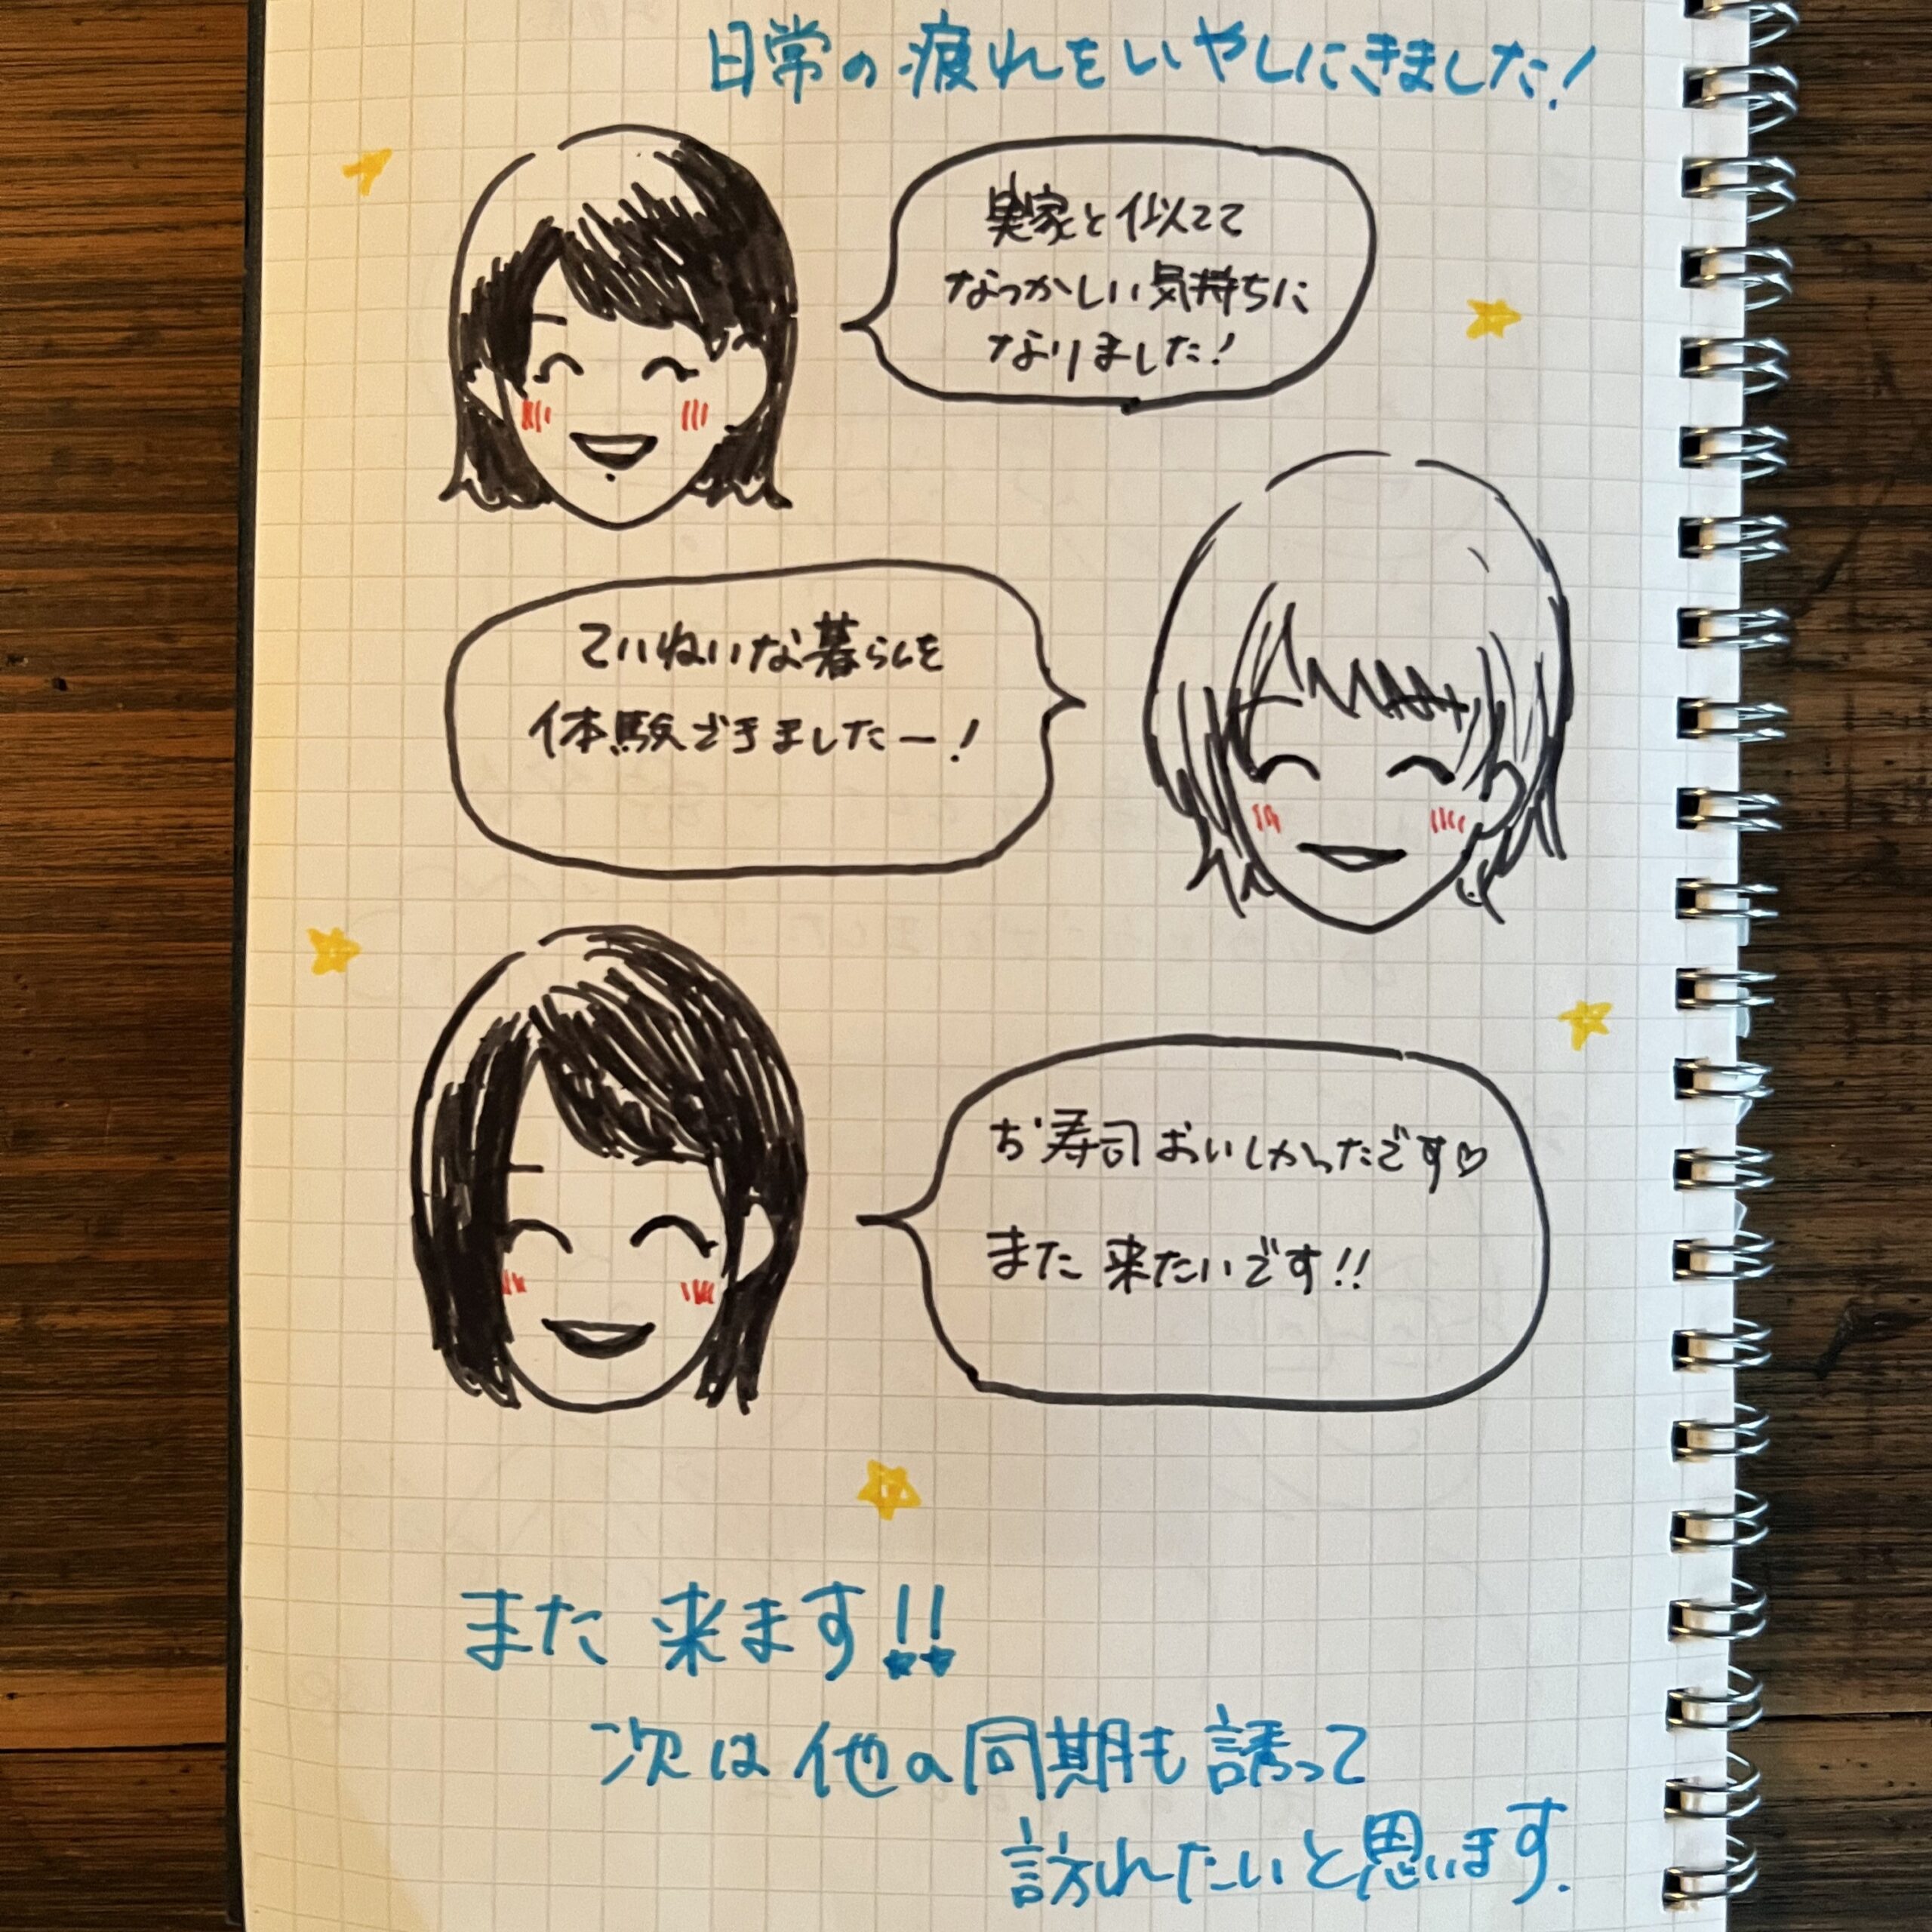 日常の疲れをいやしにきました!
実家と似てて
なつかしい気持ちに
なりました!
ていねいな暮らしを
体験できましたー!
お寿司おいしかったです♡
また来たいです!!
また来ます!!
次は他の同期も誘って
訪れたいと思います.